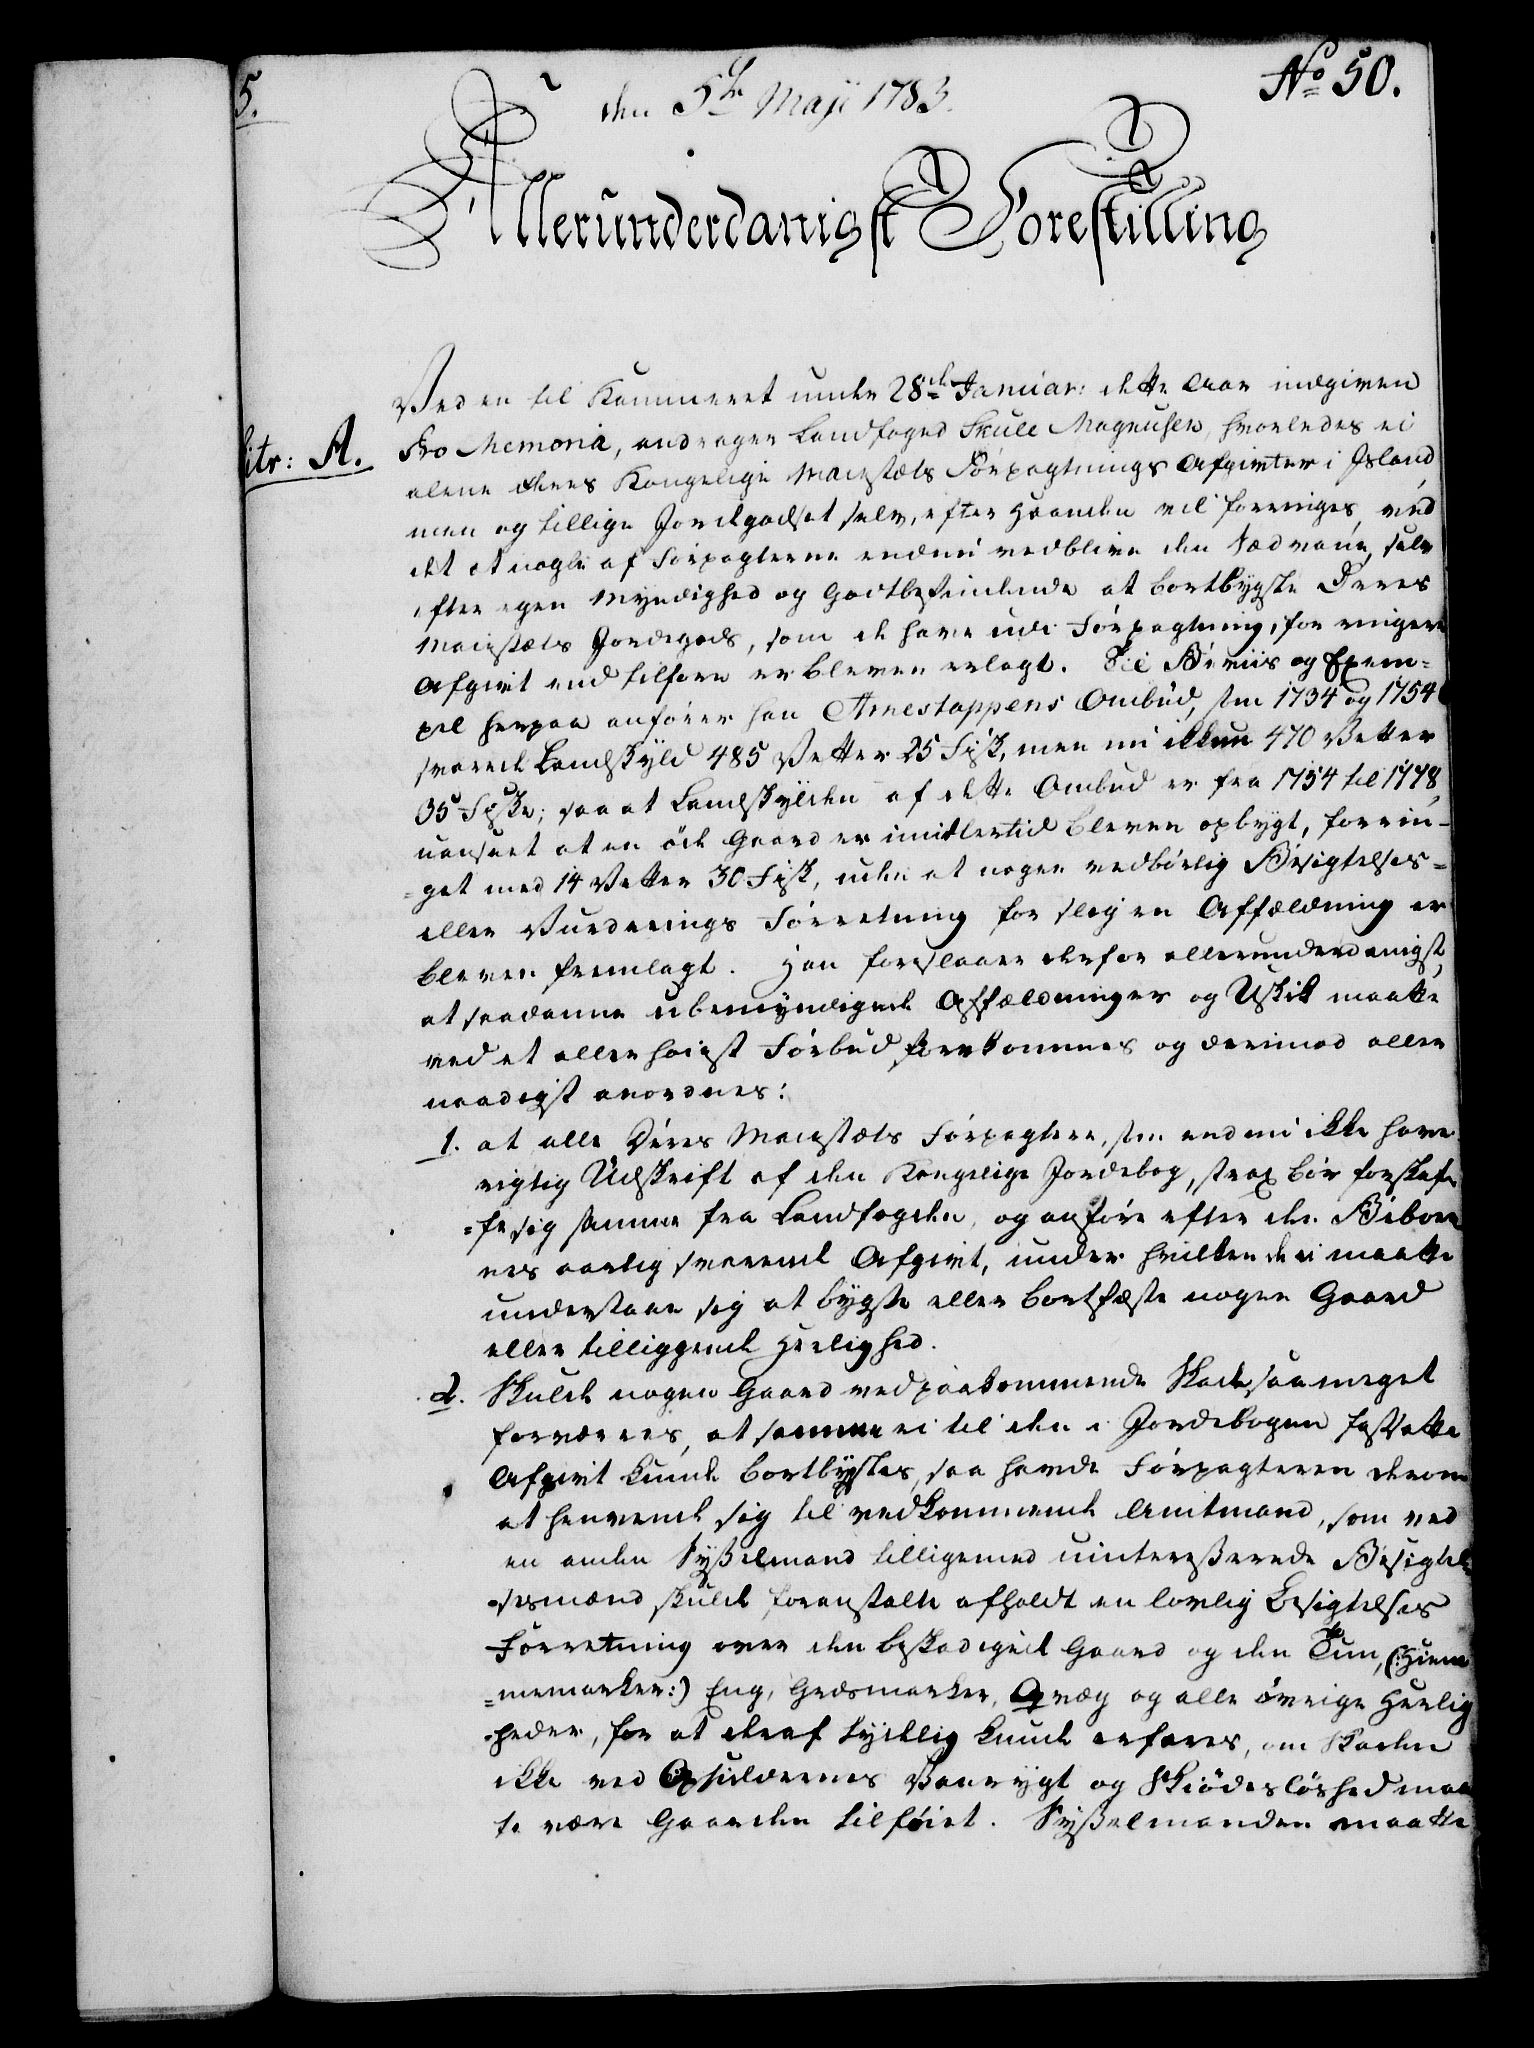 5.
No 50.
den 5te Maji 1783.
Allerunderdanigst Forestilling
Ved en til Kammeret under 28de Januar: dette Aar indgiven
litr: A.
Pro Memoria, andrager Landfoged Skule Magnusen, hvorledes ei
alene Deres Kongelige Maiestæts Forpagtnings Afgivter i Island,
men og tillige Jordegodset selv, efter Haanden vil forringes, ved
det at nogle af Forpagterne endnu vedblive den Sædvane, selv
efter egen Myndighed og Godtbefindende at bortbygsle Deres
Maiestæts Jordegods, som de have udi Forpagtning, for ringere
Afgivt end tilforn er bleven erlagt. Til Beviis og Exem-
pel herpaa anfører han Arnestappens Ombud, som 1734 og 1754
svarede Landskyld 485 Vetter 25 Fisk, men nu ikkun 470 Vetter
35 Fiske; saa at Landskylden af dette Ombud er fra 1754 til 1778,
uanseet at en öde Gaard er imidlertid bleven opbygt, forrin-
=get med 14 Vetter 30 Fisk, uden at nogen vedbörlig Besigtelses-
eller Vurderings Forretning for slig en Affældning er
bleven fremlagt. Han foreslaaer derfor allerunderdanigst,
at saadanne ubemyndigede Affældninger og Uskik maatte
ved et allerhöiest Forbud forekommes og derimod aller
naadigst anordnes:
1. at alle Deres Maiestæts Forpagtere, som endnu ikke have
rigtig Udskrift af den Kongelige Jordebog, strax bör forskaf-
=fe sig samme fra Landfogden, og anföre efter den Beboer
nes aarlig svarende Afgivt, under hvilken de ei maatte
understaae sig at bygsle eller bortfæste nogen Gaard
eller tilliggende Herlighed.
2. Skulde nogen Gaard ved paakommende Skade saa meget
forværres, at samme ei til den i Jordebogen fastsatte
Afgivt kunde bortbygsles, saa havde Forpagteren derom
at henvende sig til vedkommende Amtmand, som ved
en anden Sysselmand tilligemed uinteresserede Besigtel-
=sesmænd skulde foranstalte afholdt en lovlig Besigtelses
Forretning over den beskadigede Gaard og den Tun, (:Hiem
=memarker:) Eng, Græsmarker, Qvæg og alle övrige Herlig
=heder, for at deraf tydelig kunde erfares, om Skaden
ikke ved Opsiddernes Vanrygt og Skiödeslöshed maa
te være Gaarden tilföiet. Sysselmanden maatte